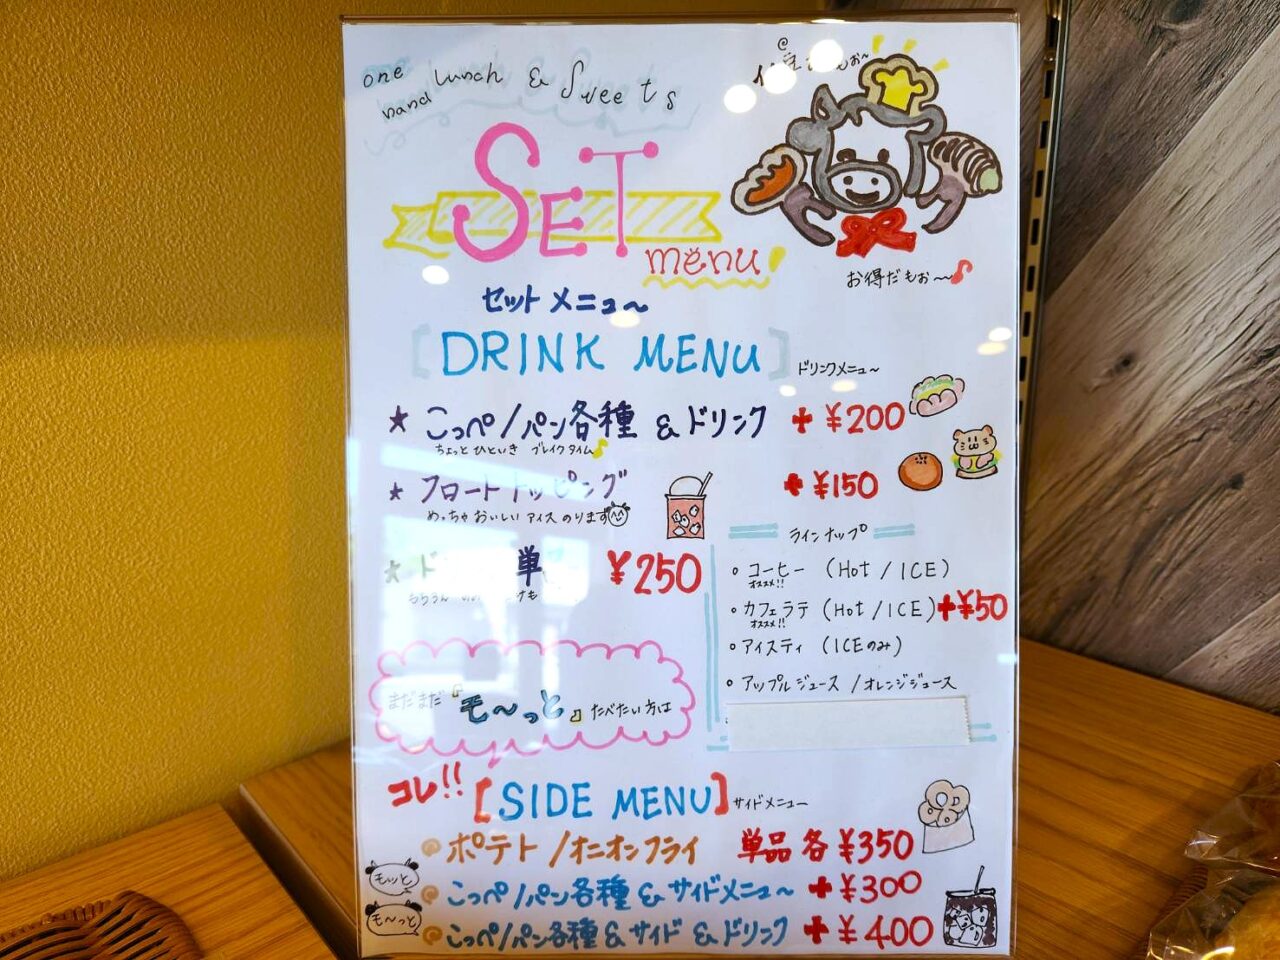 one
hand Lunch & Sweets
SET
menu!
お得だもぉ〜♪
セット メニュ〜
[DRINK MENU] ドリンクメニュ〜
★ こっペ/パン各種 & ドリンク + ¥200
ちょっと ひといき ブレイクタイム♪
★ フロートトッピング + ¥150
めっちゃ おいしい アイス のります
ラインナップ
★ 単 ¥250
• コーヒー (Hot / ICE)
オススメ!!
• カフェラテ (Hot / ICE) +¥50
オススメ!!
• アイスティ (ICEのみ)
• アップルジュース / オレンジジュース
まだまだ 『も〜っと』 たべたい方は
コレ!! [SIDE MENU] サイドメニュー
ポテト / オニオンフライ 単品 各 ¥350
もッと こっペ/パン各種 & サイドメニュ〜 + ¥300
も〜っと こっペ/パン各種 & サイド & ドリンク + ¥400